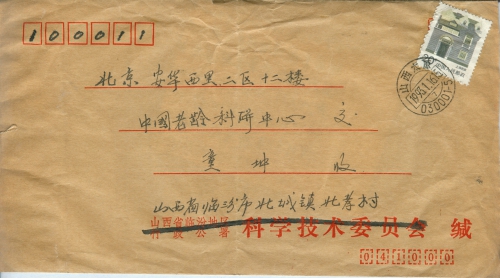 100011
北京 安华西里二区十二楼
中国老龄科研中心 交
童坤 收
山西省临汾市北城镇北孝村
山西省临汾地区
行政公署 科学技术委员会 缄
041000
山西
030001-5